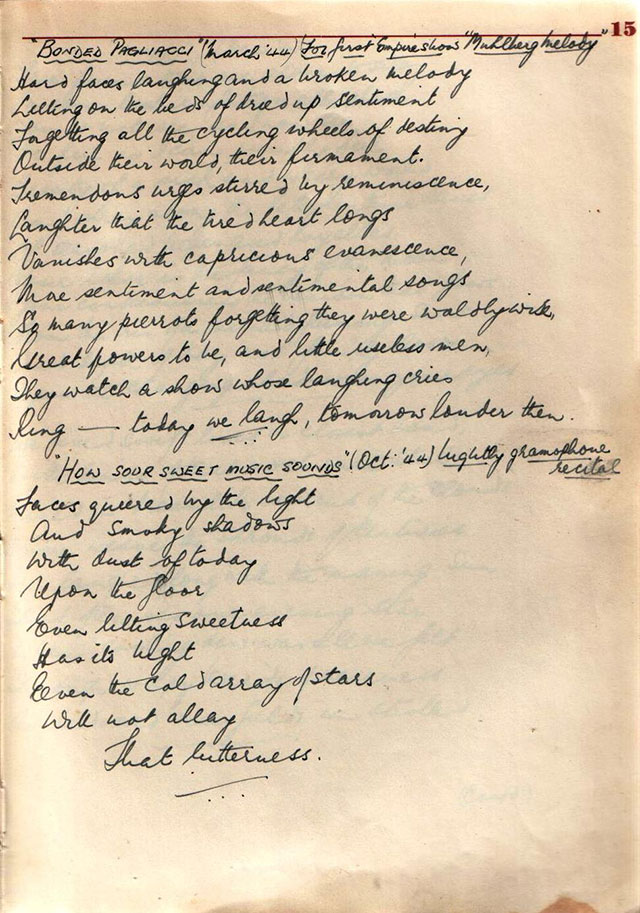 15
"BONDED PAGLIACCI" (March '44) For first Empire show "Muhlberg Melody"
Hard faces laughing and a broken melody
Lilting on the beds of dried up sentiment
Forgetting all the cycling wheels of destiny
Outside their world, their firmament.
Tremendous urges stirred by reminiscence,
Laughter that the tired heart longs
Vanishes with capricious evanescence,
More sentiment and sentimental songs
So many pierrots forgetting they were worldly wise,
Great powers to be, and little useless men,
They watch a show whose laughing cries
Ring — today we laugh, tomorrow louder then.
"HOW SOUR SWEET MUSIC SOUNDS" (Oct: '44) Nightly gramophone
recital
Faces queered by the light
And smoky shadows
With dust of today
Upon the floor
Even lilting sweetness
Has its
Even the cold array of stars
Will not allay
That bitterness.